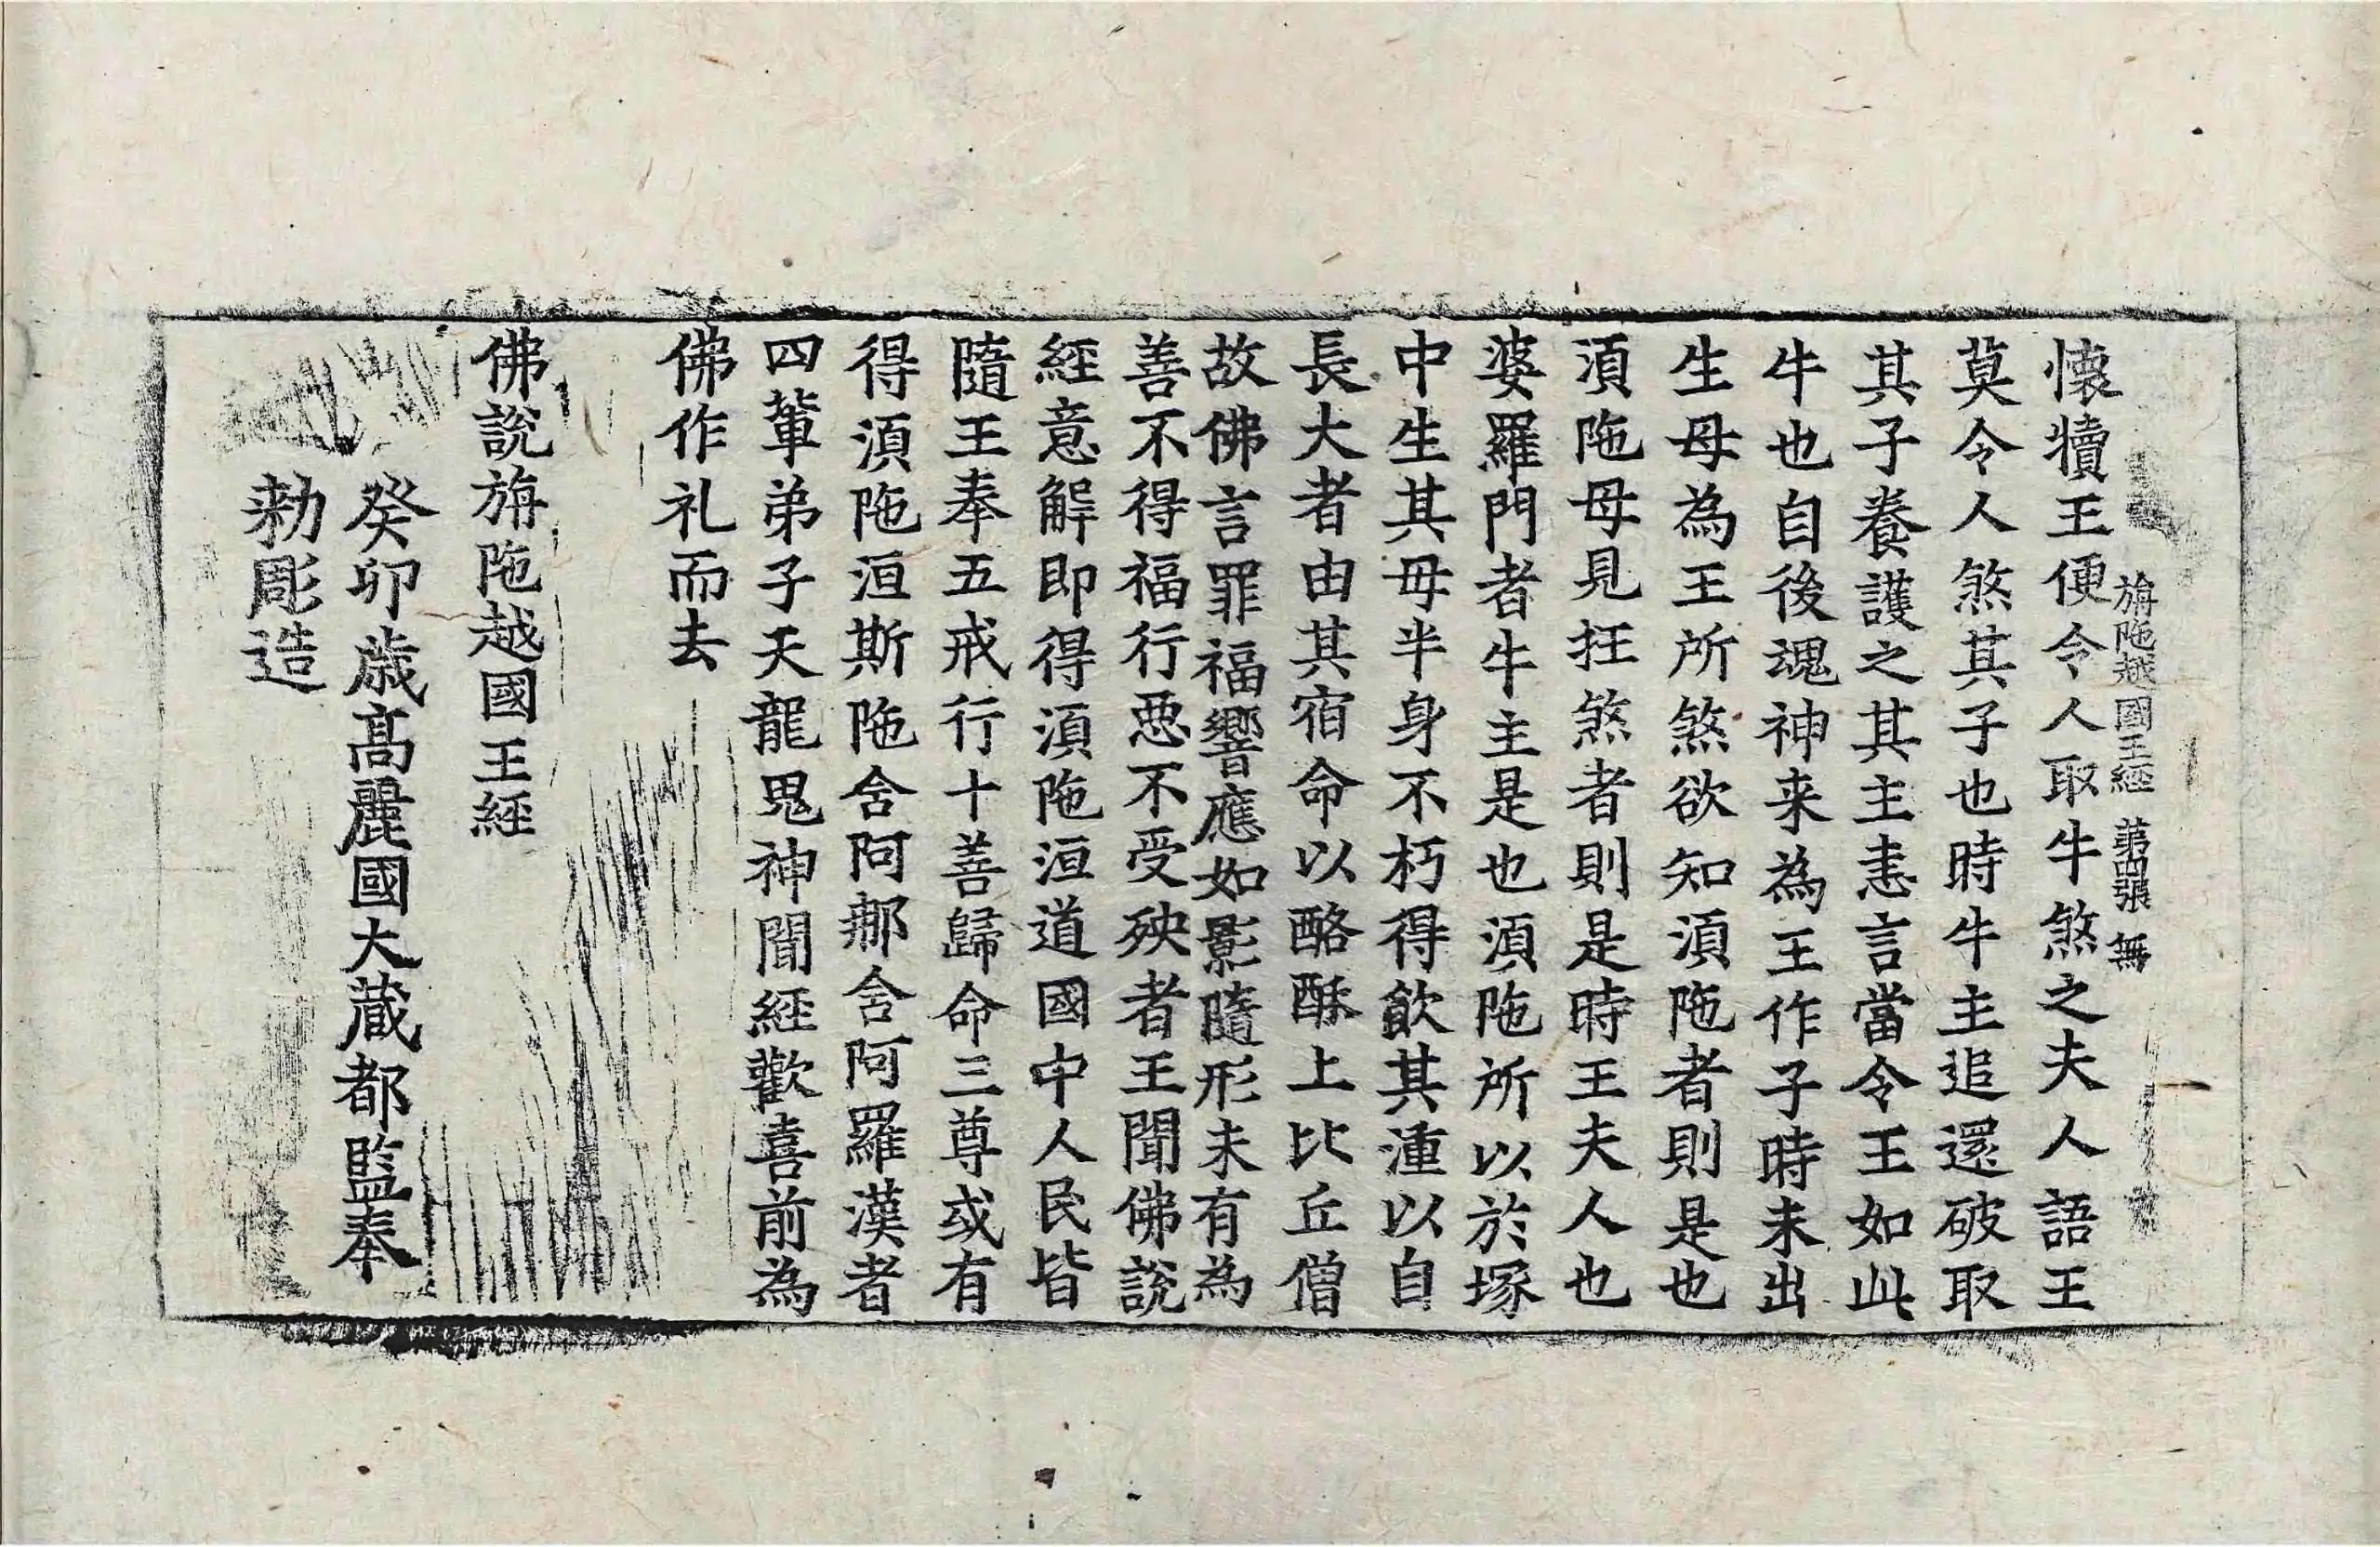 懷犢王便令人取牛煞之夫人語王
旃陁越國王經 第四張 無
莫令人煞其子也時牛主追還破取
其子養護之其主恚言當令王如此
牛也自後魂神来為王作子時未出
生母為王所煞欲知湏陁者則是也
湏陁母見抂煞者則是時王夫人也
婆羅門者牛主是也湏陁所以於塚
中生其母半身不朽得飮其湩以自
長大者由其宿命以酪酥上比丘僧
故佛言罪福響應如影隨形未有為
善不得福行惡不受殃者王聞佛說
經意解即得湏陁洹道國中人民皆
隨王奉五戒行十善歸命三尊或有
得湏陁洹斯陁含阿那含阿羅漢者
四輩弟子天龍鬼神聞經歡喜前為
佛作礼而去
佛說旃陁越國王經
癸卯歲髙麗國大藏都監奉
勑彫造